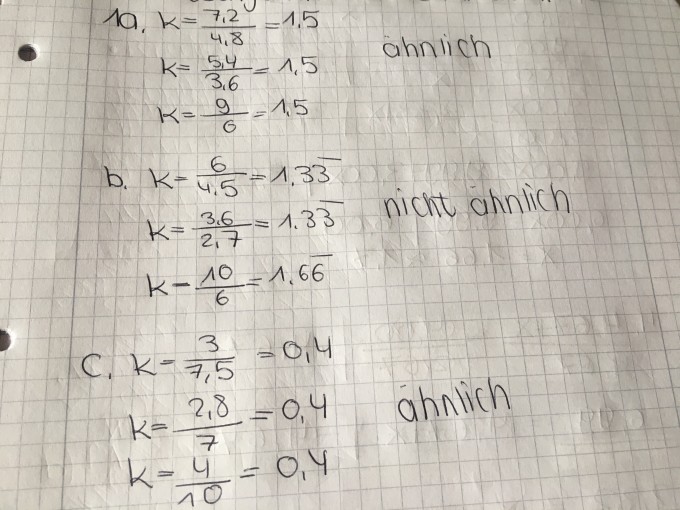 1a. k = 7,2/4,8 = 1,5
k = 5,4/3,6 = 1,5
ähnlich
k = 9/6 = 1,5
b. k = 6/4.5 = 1.33̅
nicht ähnlich
k = 3.6/2,7 = 1.33̅
k = 10/6 = 1.66̅
C. k = 3/7,5 = 0,4
k = 2,8/7 = 0,4
ähnlich
k = 4/10 = 0,4